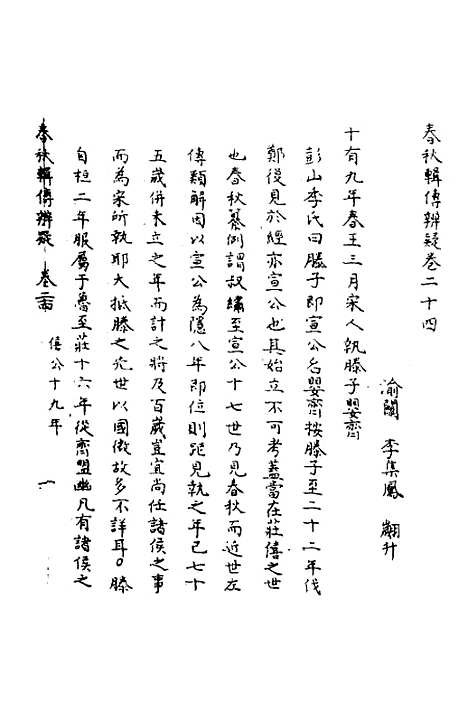 春秋輯傳辨疑卷二十四
渝關 李集鳳 翽升
十有九年春王三月宋人執滕子嬰齊
彭山李氏曰滕子即宣公名嬰齊按滕子至二十二年伐
鄭復見於經亦宣公也其始立不可考蓋當在莊僖之世
也春秋纂例謂叔繡至宣公十七世乃見春秋而近世左
傳類解因以宣公為隱八年即位則距見執之年已七十
五歲併未立之年而計之將及百歲豈宜尚任諸侯之事
而為宋所執耶大抵滕之先世以國微故多不詳耳○滕
自桓二年服屬于魯至莊十六年從齊盟幽凡有諸侯之
春秋輯傳辨疑 卷二十四
僖公十九年
一